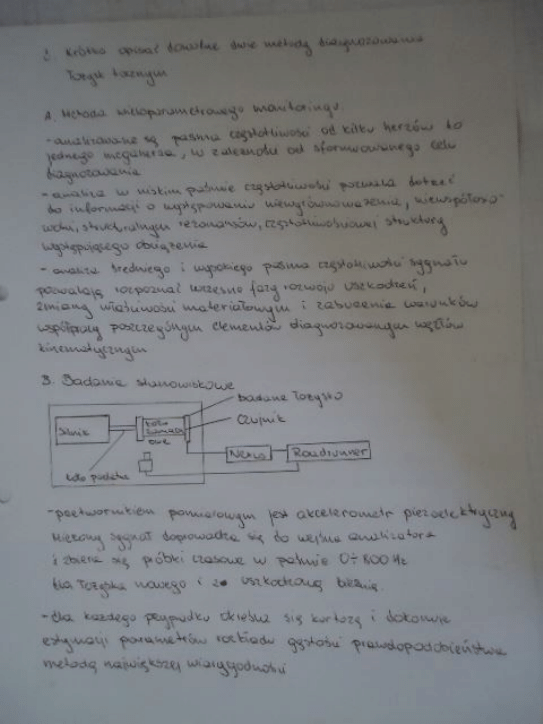 2. Krótko opisać dowolne dwie metody diagnozowania
łożysk tocznych
A. Metoda wieloparametrowego monitoringu.
- analizowane są pasma częstotliwości od kilku herzów do
jednego megaherza, w zależności od sformułowanego celu
diagnozowania
- analiza w niskim paśmie częstotliwości pozwala dotrzeć
do informacji o występowaniu niewyrównoważenia, niewspółosio-
wości, strukturalnym rezonansów, częstotliwościowej struktury
występującego obciążenia
- analiza średniego i wysokiego pasma częstotliwości sygnału
pozwalają rozpoznać wczesne fazy rozwoju uszkodzeń,
zmiany właściwości materiałowych i zaburzenia warunków
współpracy poszczególnych elementów diagnozowanych węzłów
kinematycznych
B. Badania stanowiskowe
badane łożysko
Czujnik
Silnik
koło
owe
Nexus
Roadrunner
koło
- przetwornikiem pomiarowym jest akcelerometr piezoelektryczny
Mierzony sygnał doprowadza się do wejścia analizatora
i zbiera się próbki czasowe w paśmie 0÷800 Hz
dla łożyska nowego i z uszkodzoną bieżnią.
- dla każdego przypadku określa się kurtozę i dokonuje
estymacji parametrów rozkładu gęstości prawdopodobieństwa
metodą największej wiarygodności